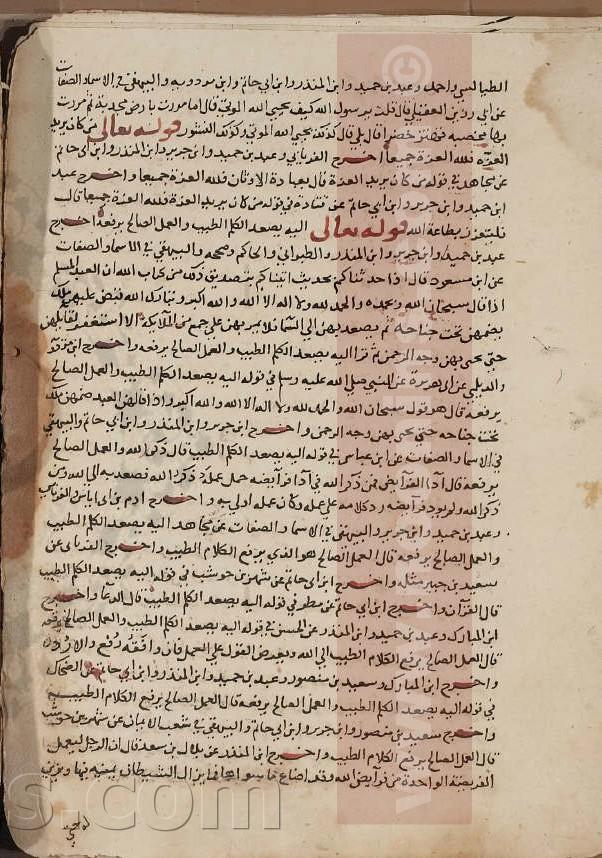 الطيالسي واحمد وعبد بن حميد وابن المنذر وابن ابي حاتم وابن مردويه والبيهقي في الاسماء والصفات
عن ابي رزين العقيلي قال قلت يا رسول الله كيف يحيي الله الموتي قال اما مررت بارض مجدبة ثم مررت
بها مخصبة تهتز خضرا قال بلي قال كذلك يحيي الله الموتي وكذلك النشور قوله تعالي من كان يريد
العزة فلله العزة جميعا اخرج الفريابي وعبد بن حميد وابن جرير وابن المنذر وابن ابي حاتم
عن مجاهد في قوله من كان يريد العزة قال بعبادة الاوثان فلله العزة جميعا واخرج عبد
ابن حميد وابن جرير وابن ابي حاتم عن قتادة في قوله من كان يريد العزة فلله العزة جميعا قال
فليتعزز بطاعة الله قوله تعالي اليه يصعد الكلم الطيب والعمل الصالح يرفعه اخرج
عبد بن حميد وابن جرير وابن المنذر والطبراني والحاكم وصححه والبيهقي في الاسماء والصفات
عن ابن مسعود قال اذا حدثناكم بحديث اتيناكم بتصديق ذلك من كتاب الله ان العبد المسلم
اذا قال سبحان الله وبحمده والحمد لله ولا اله الا الله والله اكبر وتبارك الله قبض عليهن ملك
يضمهن تحت جناحه ثم يصعد بهن الي السما فلا يمر بهن علي جمع من الملايكة الا استغفر لقايلهن
حتي يجي بهن وجه الرحمن ثم قرا اليه يصعد الكلم الطيب والعمل الصالح يرفعه واخرج ابن مردويه
والديلمي عن ابي هريرة عن النبي صلي الله عليه وسلم في قوله اليه يصعد الكلم الطيب والعمل الصالح
يرفعه قال هو قول سبحان الله والحمد لله ولا اله الا الله والله اكبر اذا قالهن العبد ضمهن ملك
تحت جناحه حتي يجي بهن وجه الرحمن واخرج ابن جرير وابن المنذر وابن ابي حاتم والبيهقي
في الاسما والصفات عن ابن عباس في قوله اليه يصعد الكلم الطيب قال ذكر الله والعمل الصالح
يرفعه قال ادا الفرايض فمن ذكر الله في ادا فرايضه حمل عمله ذكر الله فصعد به الي الله ومن
ذكر الله ولم يود فرايضه رد كلامه علي عمله وكان عمله اولي به واخرج ادم بن ابي اياس الفريابي
وعبد بن حميد وابن جرير والبيهقي في الاسما والصفات عن مجاهد اليه يصعد الكلم الطيب
والعمل الصالح يرفعه قال العمل الصالح هو الذي يرفع الكلام الطيب واخرج الفريابي عن
سعيد بن جبير مثله واخرج ابن ابي حاتم عن شهر بن حوشب في قوله اليه يصعد الكلم الطيب
قال القرآن واخرج ابن ابي حاتم عن مطر في قوله اليه يصعد الكلم الطيب قال الدعا واخرج
ابن المبارك وعبد بن حميد وابن المنذر عن الحسن في قوله اليه يصعد الكلم الطيب والعمل الصالح يرفعه
قال العمل الصالح يرفع الكلام الطيب الي الله ويعرض القول علي العمل فان وافقه رفع والا رد
واخرج ابن المبارك وسعيد بن منصور وعبد بن حميد وابن المنذر وابن ابي حاتم عن الضحاك
في قوله اليه يصعد الكلم الطيب والعمل الصالح يرفعه قال العمل الصالح يرفع الكلام الطيب
واخرج سعيد بن منصور وابن جرير وابن ابي حاتم والبيهقي في شعب الايمان عن شهر بن حوشب
قال العمل الصالح يرفع الكلام الطيب واخرج ابن المنذر عن بلال بن سعد قال ان الرجل ليعمل
الفريضة الواحدة من فرايض الله وقد اضاع ما سواها فما يزال الشيطان يمنيه فيها ويزين
له حتي
s.com